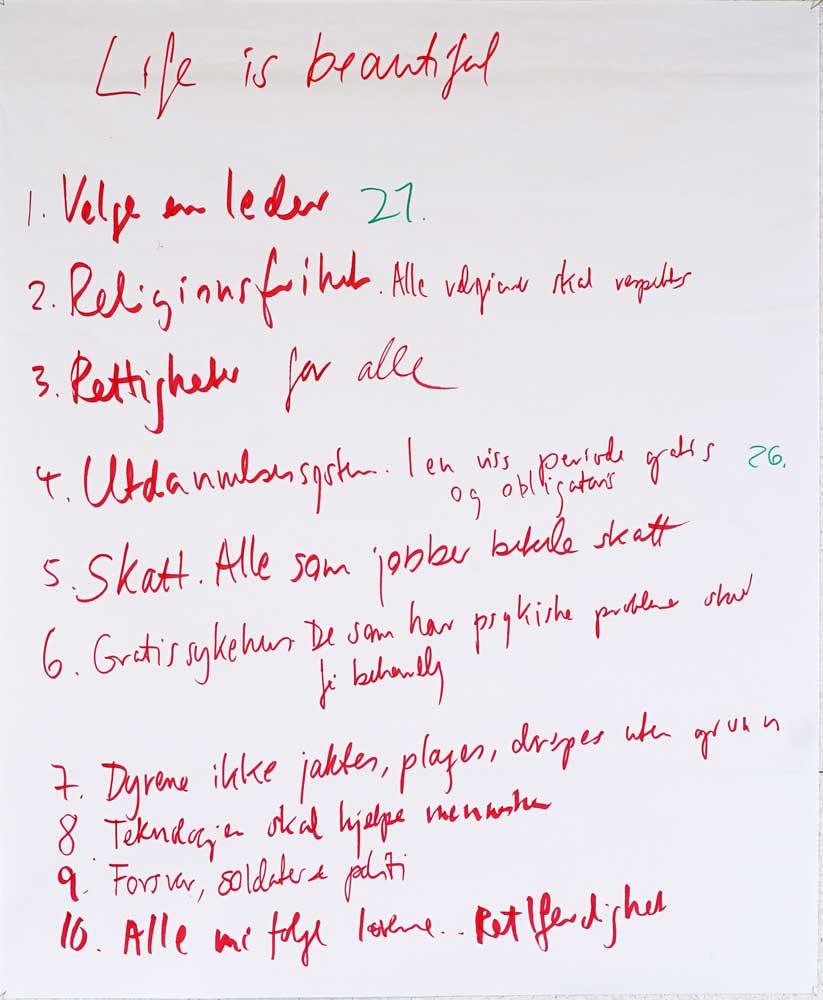 Life is beautiful
1. Velge en leder 21.
2. Religionsfrihet. Alle religioner skal respekteres
3. Rettigheter for alle
4. Utdannelsessystem. I en viss periode gratis 26.
og obligatoris
5. Skatt. Alle som jobber betale skatt
6. Gratis sykehus De som har psykiske problemer skal
få behandlg
7. Dyrene ikke jaktes, plages, drepes uten grunn
8 Teknologien skal hjelpe mennesker
9. Forsvar, soldater & politi
10. Alle må følge lovene.. Rettferdighet